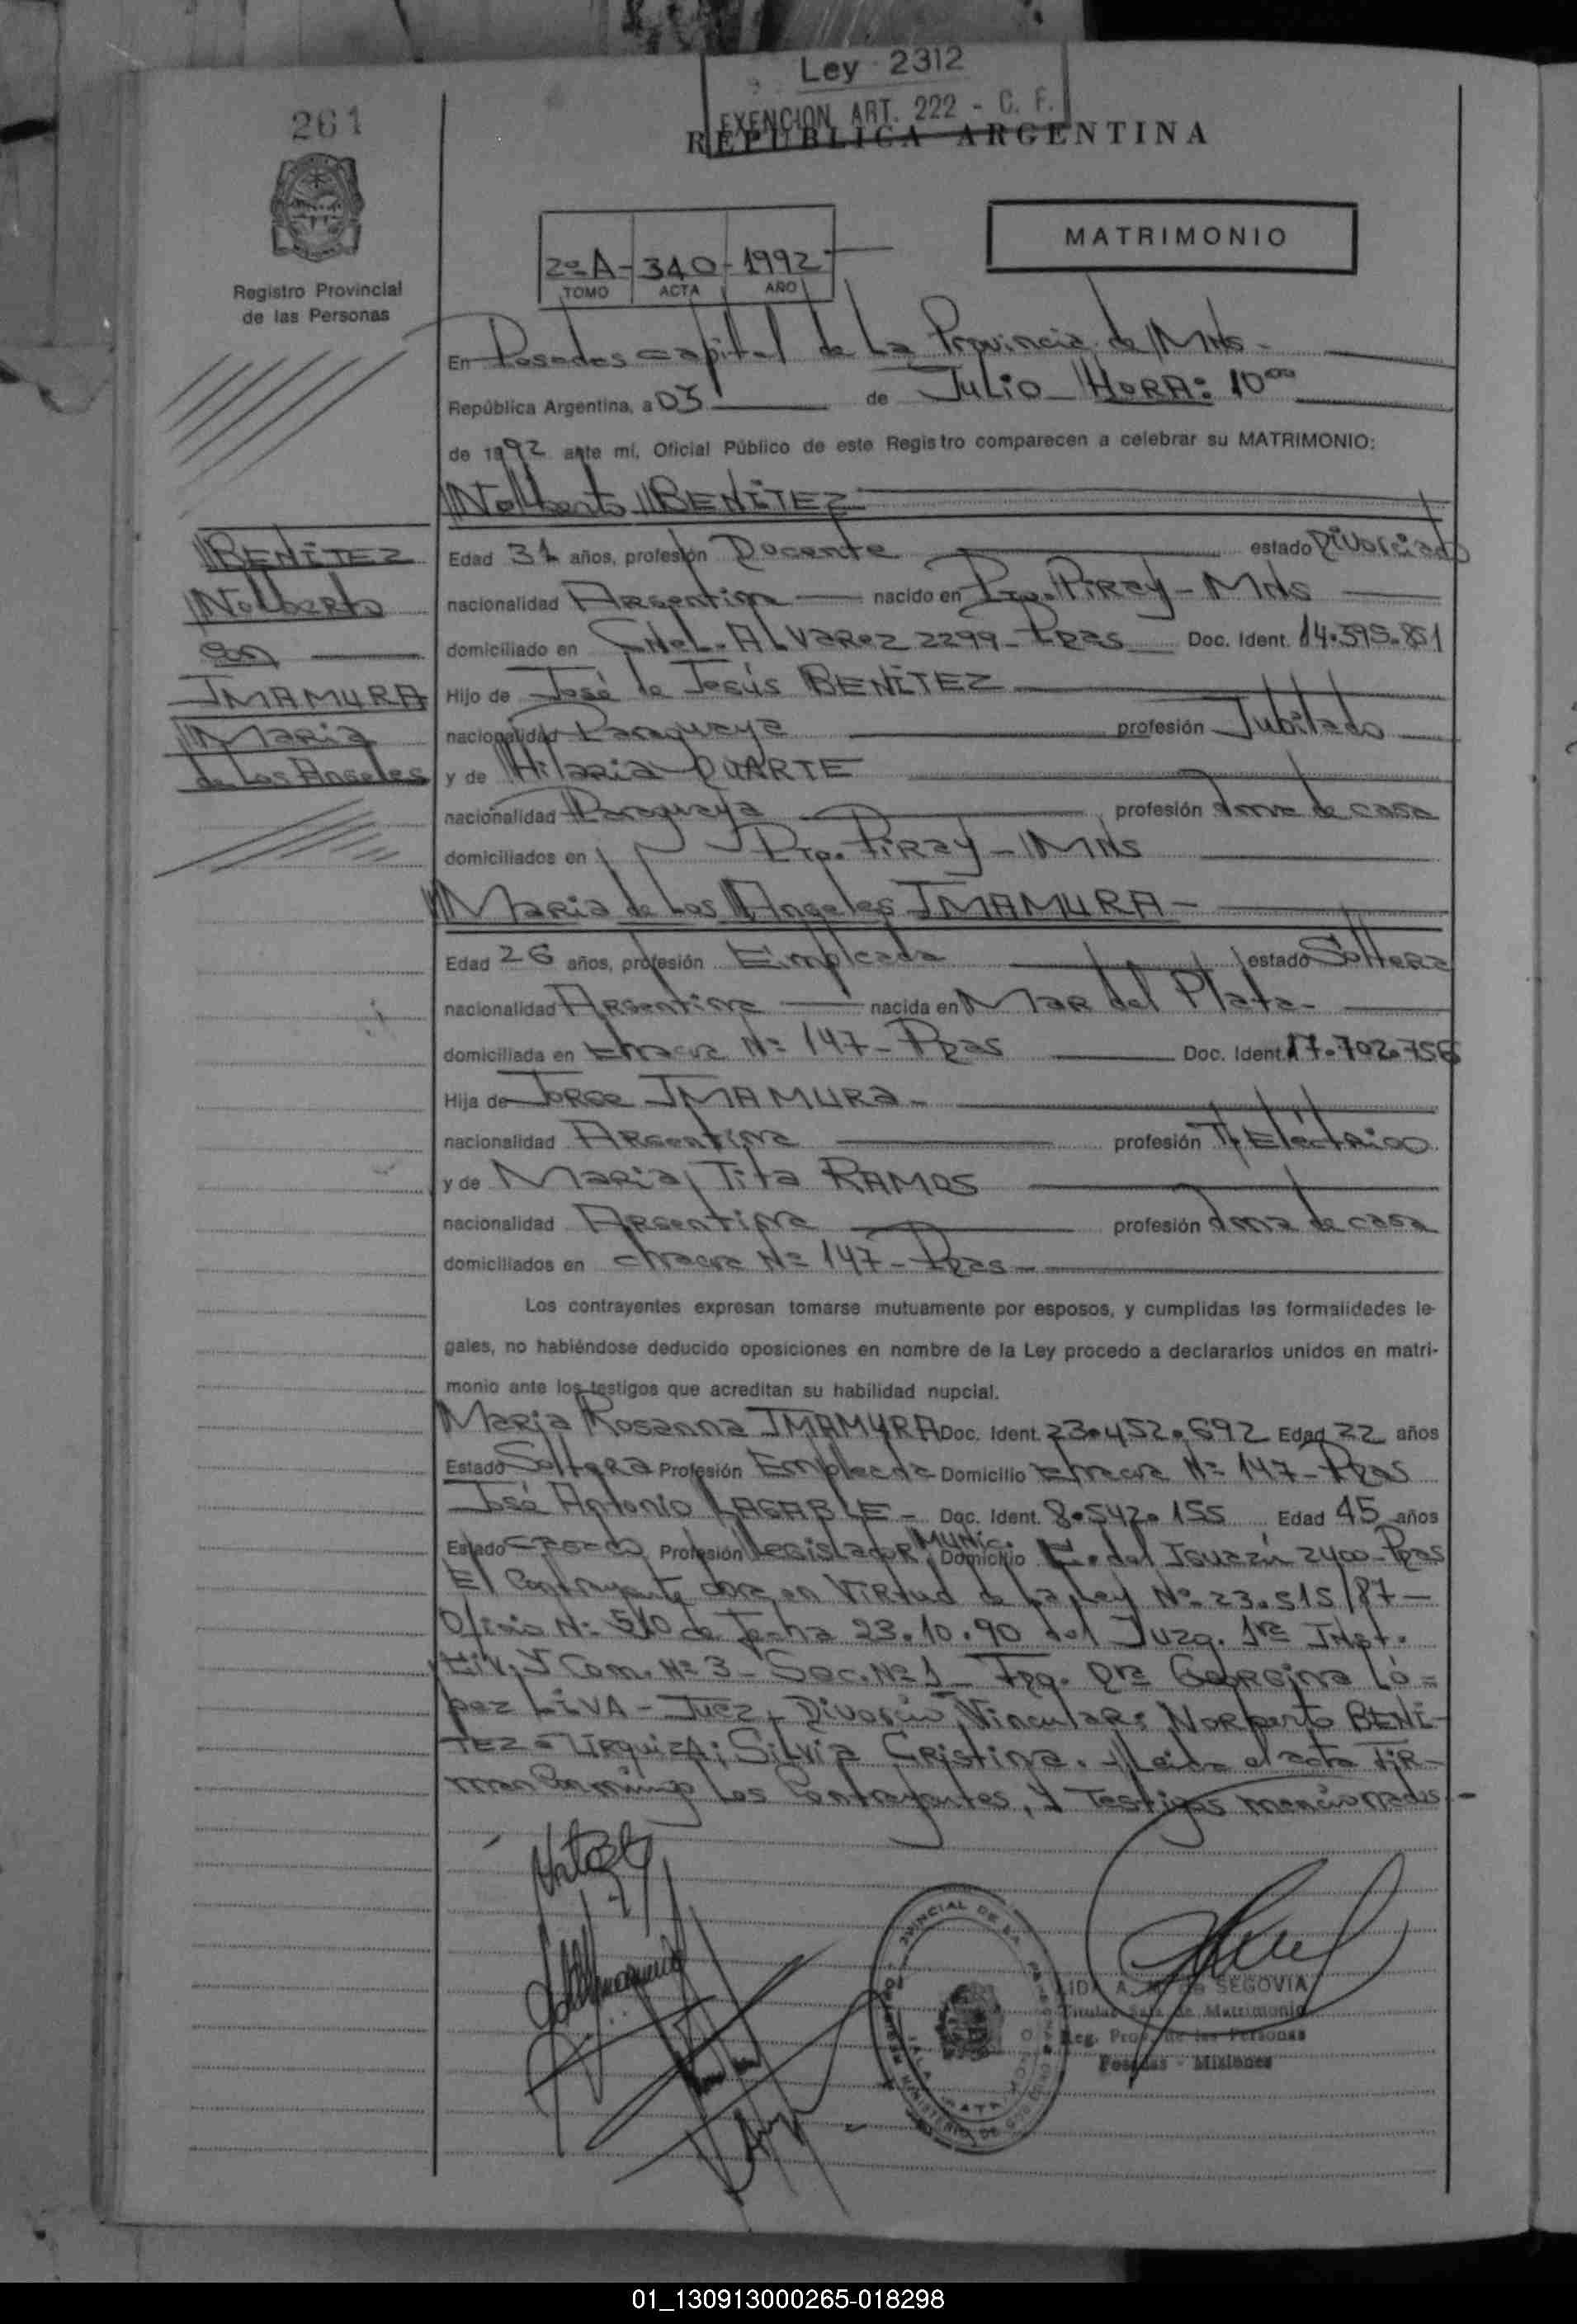 Ley 2312
EXENCION ART. 222 - C. F.
261
REPUBLICA ARGENTINA
MATRIMONIO
2º A - 340 - 1992
TOMO ACTA AÑO
Registro Provincial
de las Personas
En Posadas capital de La Provincia de Mnes -
República Argentina, a 03 de Julio HORA: 10⁰⁰
de 1992 ante mí, Oficial Público de este Registro comparecen a celebrar su MATRIMONIO:
Nolberto BENITEZ
BENITEZ
Nolberto
con
IMAMURA
Maria
de Los Angeles
Edad 31 años, profesión Docente estado Divorciado
nacionalidad Argentina nacido en Pto. Piray - Mnes
domiciliado en Cnel. Alvarez 2299 - Pdas Doc. Ident. 14.395.851
Hijo de José de Jesús BENITEZ
nacionalidad Paraguaya profesión Jubilado
y de Hilaria DUARTE
nacionalidad Paraguaya profesión ama de casa
domiciliados en Pto. Piray - Mnes
Maria de Los Angeles IMAMURA -
Edad 26 años, profesión Empleada estado Soltera
nacionalidad Argentina nacida en Mar del Plata -
domiciliada en chacra Nº 147 - Pdas Doc. Ident. 17.702.756
Hija de Jorge IMAMURA -
nacionalidad Argentina profesión T. Eléctrico
y de Maria Tita RAMOS
nacionalidad Argentina profesión ama de casa
domiciliados en chacra Nº 147 - Pdas -
Los contrayentes expresan tomarse mutuamente por esposos, y cumplidas las formalidades le-
gales, no habiéndose deducido oposiciones en nombre de la Ley procedo a declararlos unidos en matri-
monio ante los testigos que acreditan su habilidad nupcial.
Maria Rosanna IMAMURA Doc. Ident. 23.452.692 Edad 22 años
Estado Soltera Profesión Empleada Domicilio chacra Nº 147 - Pdas
José Antonio LAGABLE - Doc. Ident. 8.542.155 Edad 45 años
Estado casado Profesión Legislador Munic. Domicilio C. del Iguazú 2400 - Pdas
El Contrayente obra en Virtud de La Ley Nº 23.515/87 -
Oficio Nº 510 de fecha 23.10.90 del Juzg. 1ra Inst.
Civ. y Com. Nº 3 - Sec. Nº 1 - Fdo. Dra Georgina Ló=
pez LIVA - Juez - Divorcio Vincular: Norberto BENI-
TEZ = Urquiza; Silvia Cristina. Leida el acta fir-
man Conmigo Los Contrayentes, y Testigos mencionados -
LIDA A. DE SEGOVIA
Titular Sala de Matrimonio
Reg. Prov. de las Personas
Posadas - Misiones
01_130913000265-018298